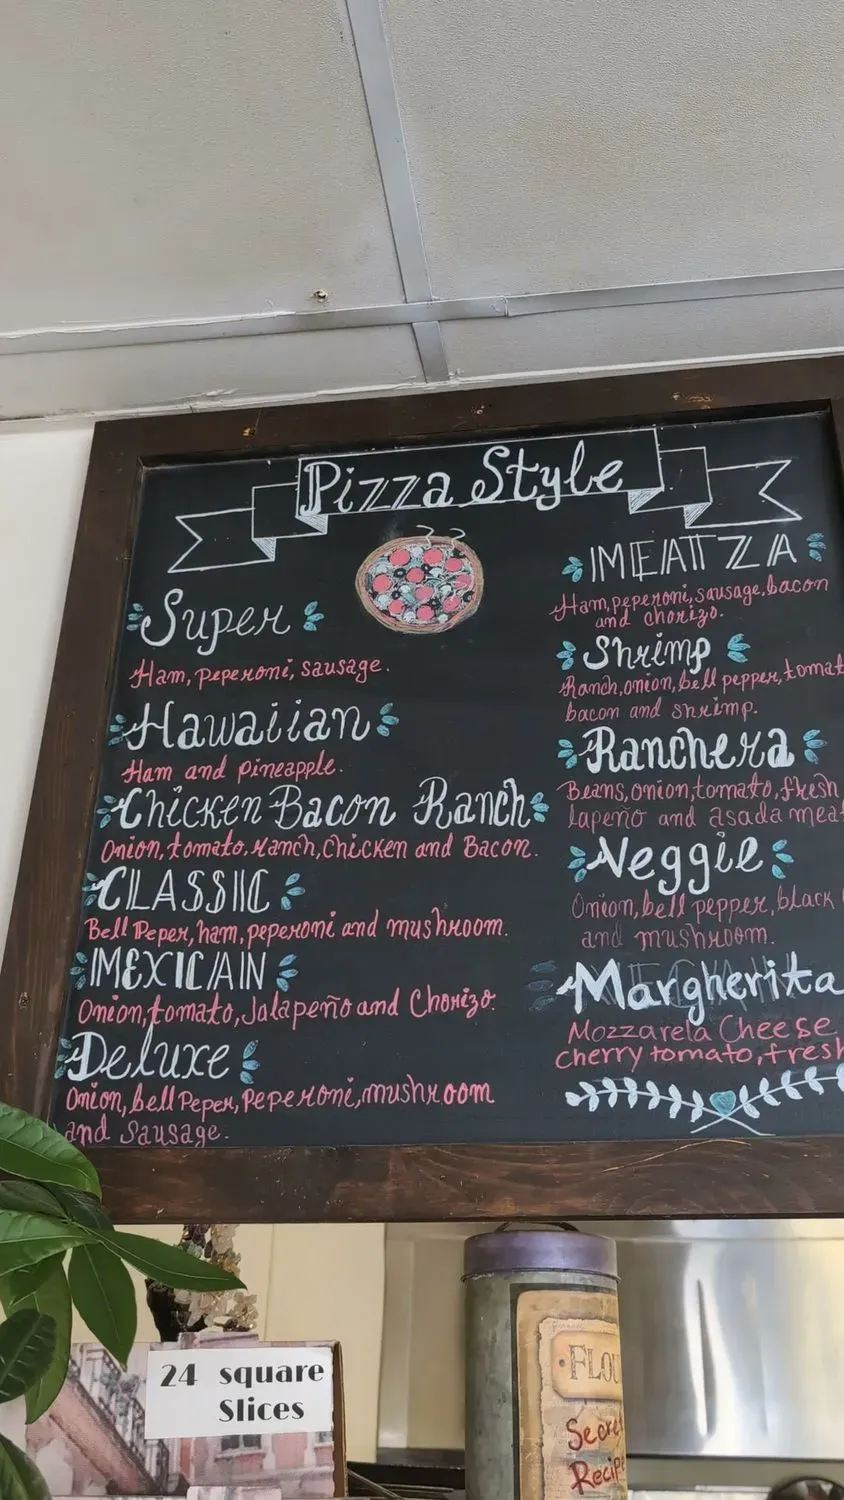 Pizza Style
Super
Ham, peperoni, sausage.
Hawaiian
Ham and pineapple.
Chicken Bacon Ranch
Onion, tomato, ranch, chicken and Bacon.
CLASSIC
Bell Peper, ham, peperoni and mushroom.
MEXICAN
Onion, tomato, Jalapeño and Chorizo.
Deluxe
Onion, bell Peper, Peperoni, mushroom
and sausage.
MEATZZA
Ham, peperoni, sausage, bacon
and chorizo.
Shrimp
Ranch, onion, bell pepper, tomat
bacon and shrimp.
Ranchera
Beans, onion, tomato, fresh
lapeño and asada mea
Veggie
Onion, bell pepper, black
and mushroom.
Margherita
Mozzarela Cheese
cherry tomato, fresh
24 square
Slices
FLOU
Secre
Recip